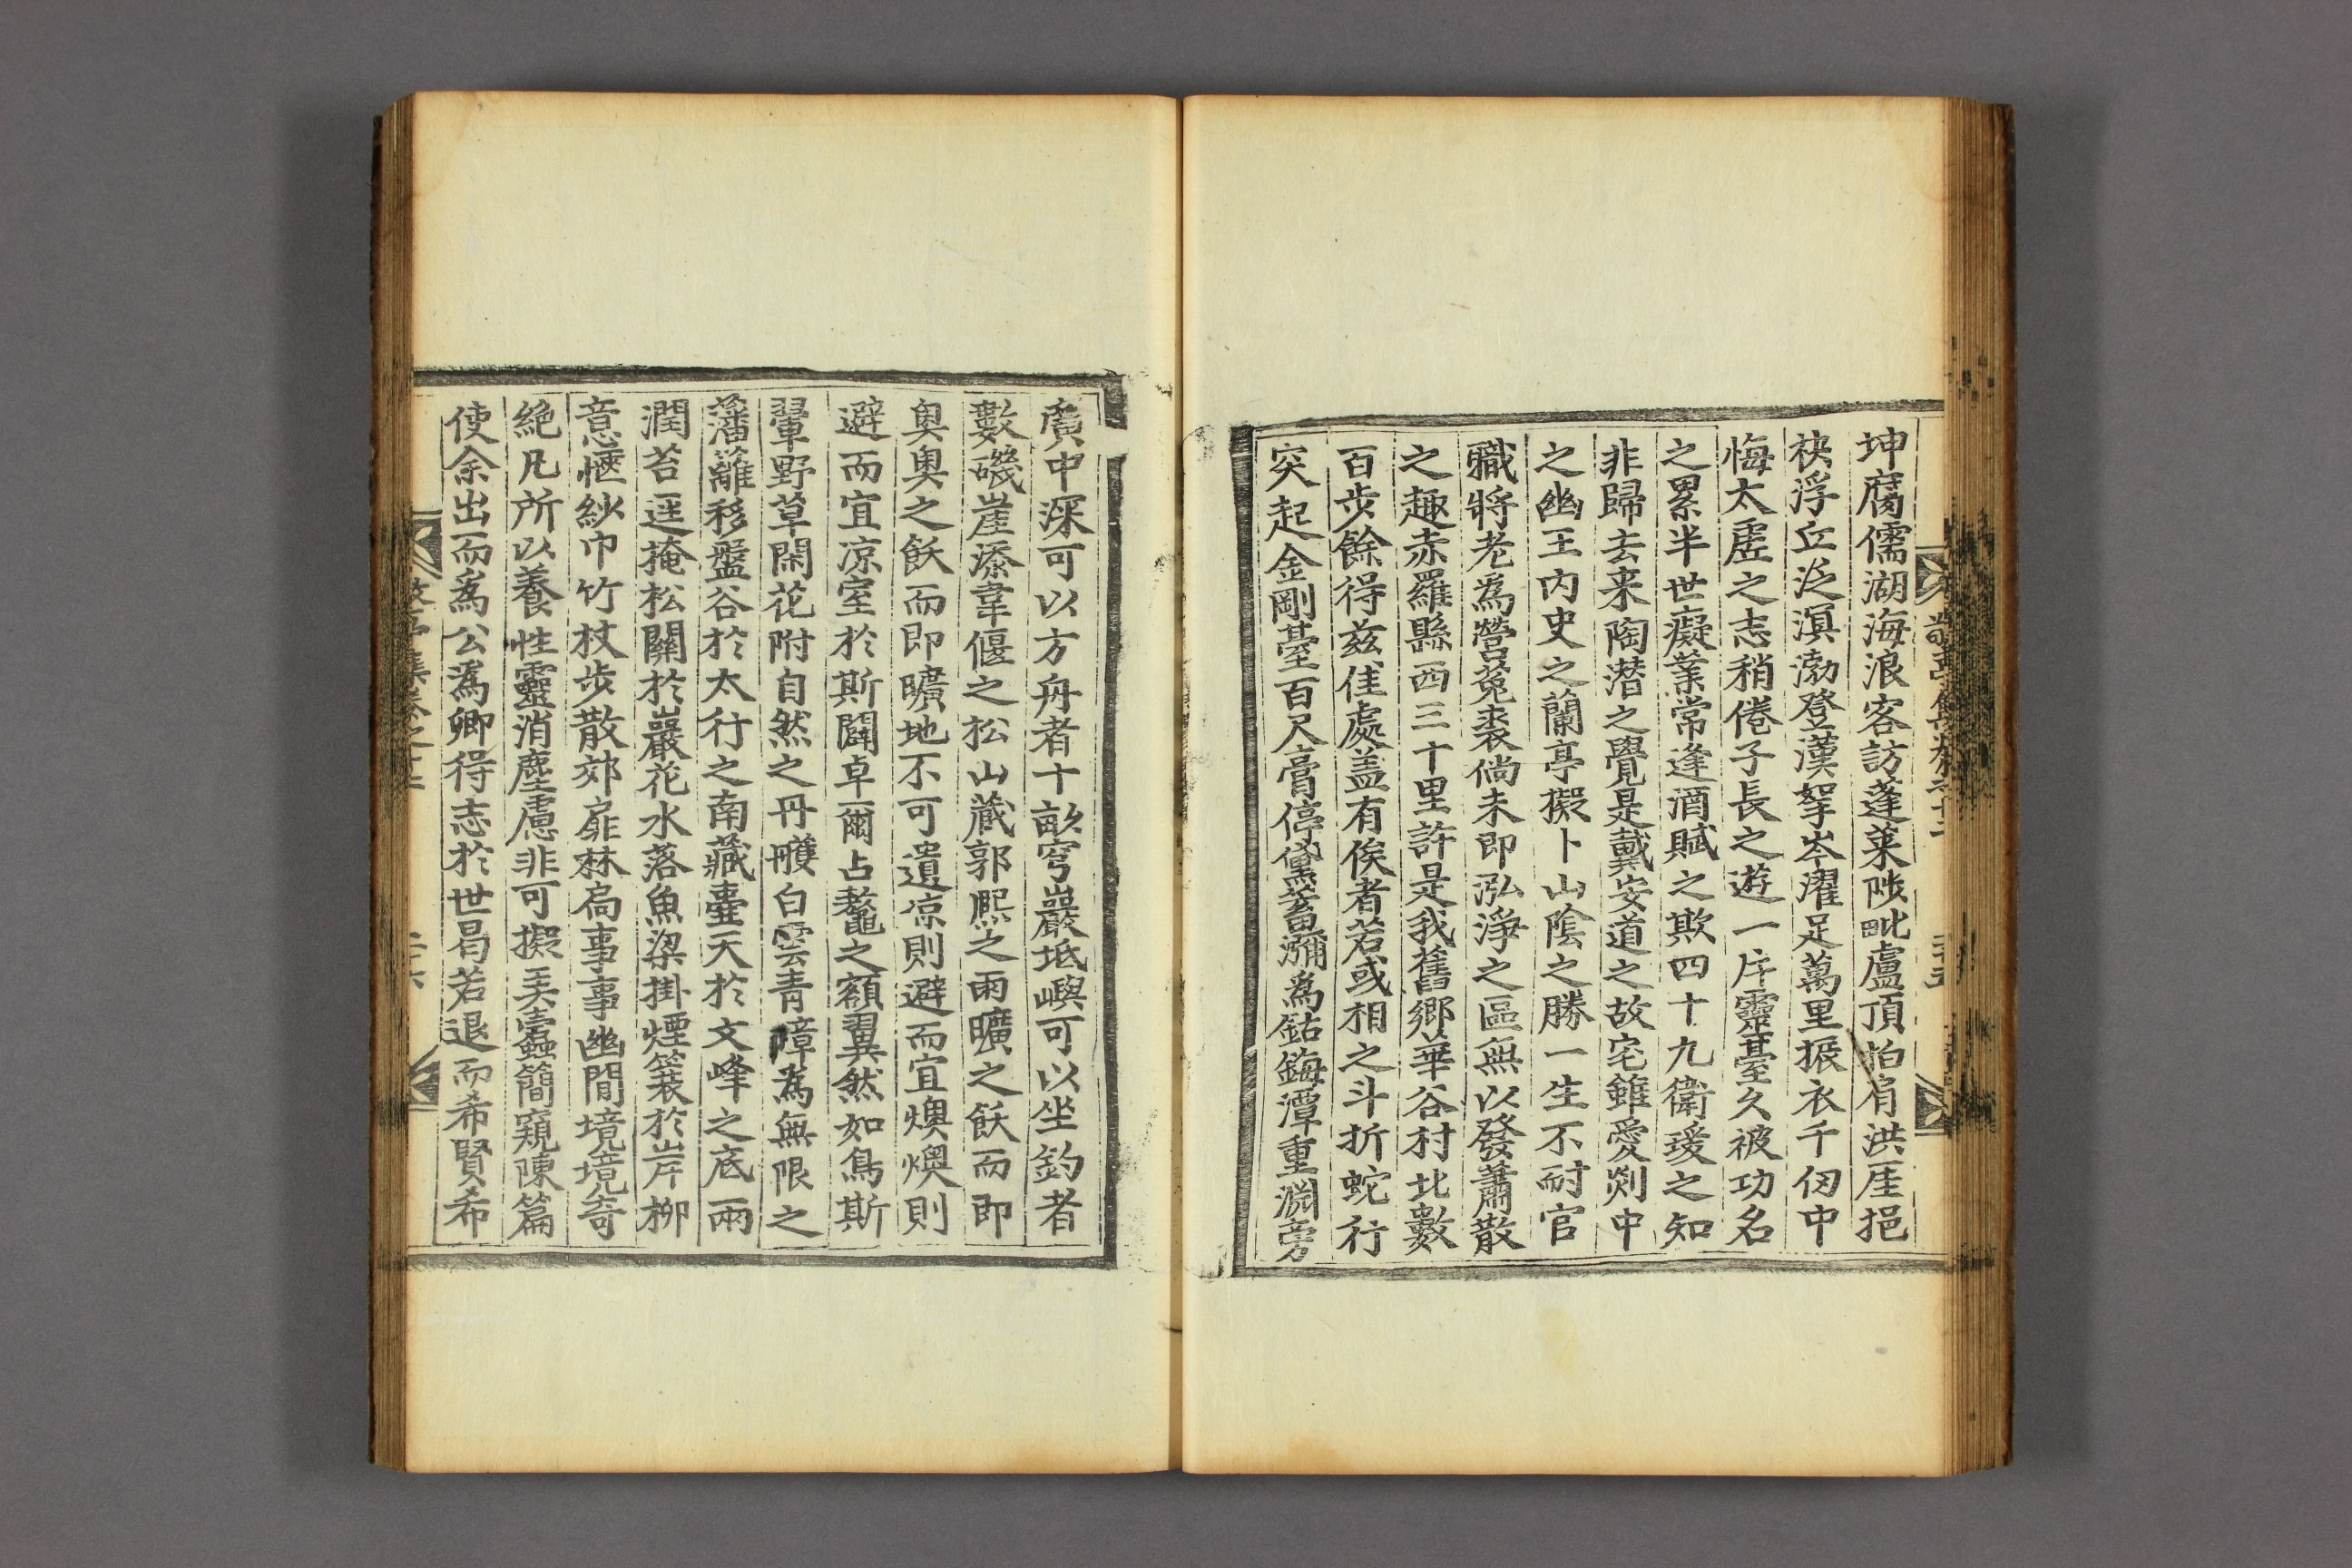 坤腐儒湖海浪客訪蓬萊陟毗盧頂怕肩洪厓挹
袂浮丘泛溟渤登漢拏岑濯足萬里振衣千仞中
悔太虛之志稍倦子長之遊一片靈臺久被功名
之累半世癡業常逢酒賦之欺四十九衛瑗之知
非歸去来陶潜之覺是戴安道之故宅雖愛剡中
之幽王內史之蘭亭擬卜山陰之勝一生不耐官
職將老爲營菟裘倘未即泓淨之區無以發蕭散
之趣赤羅縣西三十里許是我舊鄉華谷村北數
百步餘得兹佳處盖有俟者若或相之斗折蛇行
突起金剛臺百尺膏停黛蓄瀰爲鈷鉧潭重淵旁
廣中深可以方舟者十畝穹巖坻嶼可以坐釣者
數磯崖添韋偃之松山藏郭熙之雨曠之飫而即
奧奧之飫而即曠地不可遺凉則避而宜燠燠則
避而宜凉室於斯闢卓爾占鼇之額翼然如鳥斯
翬野草閑花附自然之丹雘白雲青嶂爲無限之
藩籬移盤谷於太行之南藏壷天於文峰之底雨
潤苔逕掩松關於巖花水落魚梁掛煙簑於岸柳
意愜紗巾竹杖步散郊扉林扃事事幽閒境境奇
絶凡所以養性靈消塵慮非可擬美蠹簡窺陳篇
使余出而爲公爲卿得志於世曷若退而希賢希